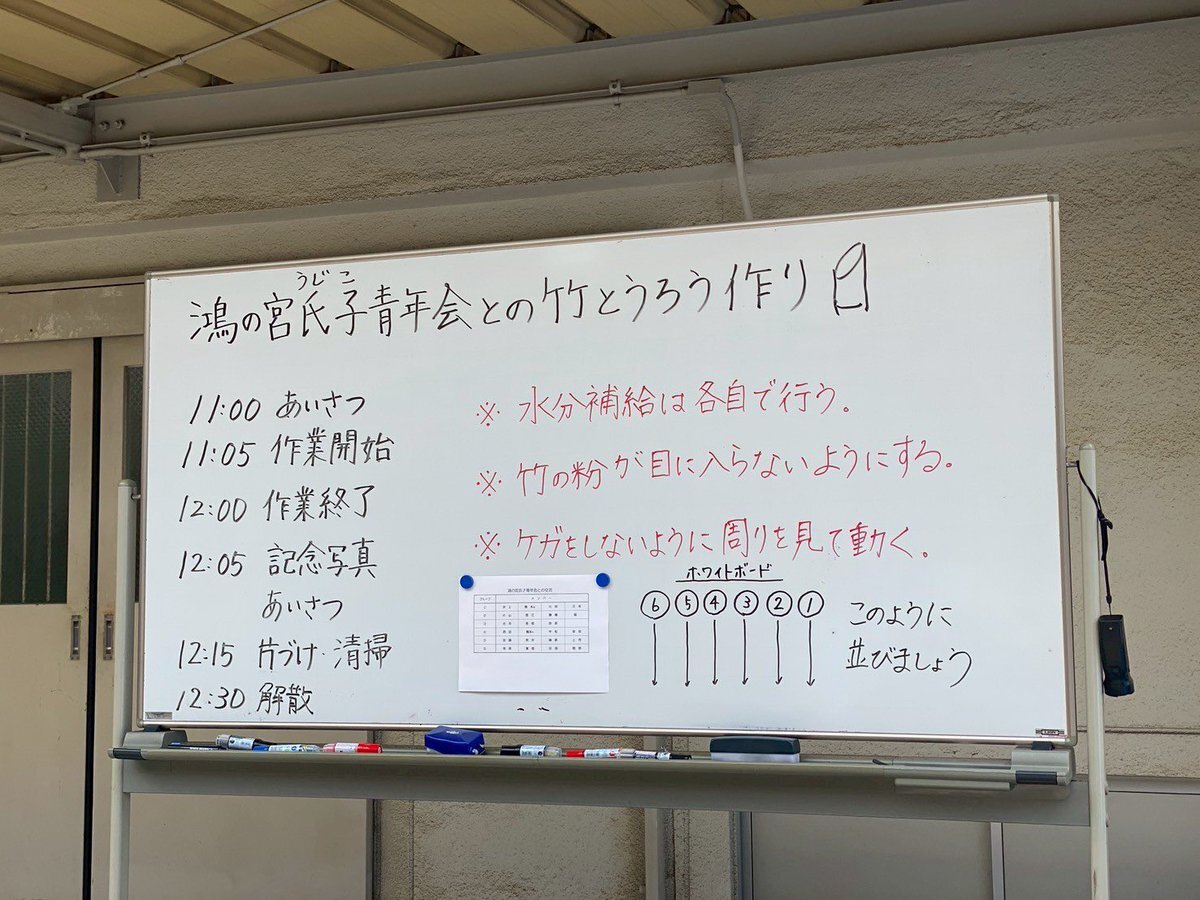 うじこ
鴻の宮氏子青年会との竹とうろう作り
11:00 あいさつ
11:05 作業開始
12:00 作業終了
12:05 記念写真
あいさつ
12:15 片づけ・清掃
12:30 解散
※ 水分補給は各自で行う。
※ 竹の粉が目に入らないようにする。
※ ケガをしないように周りを見て動く。
ホワイトボード
⑥ ⑤ ④ ③ ② ①
このように
並びましょう